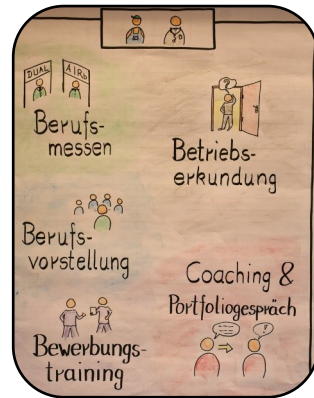 DUAL AIRb
Berufs-
messen
Betriebs-
erkundung
Berufs-
vorstellung
Coaching &
Portfoliogespräch
Bewerbungs-
training